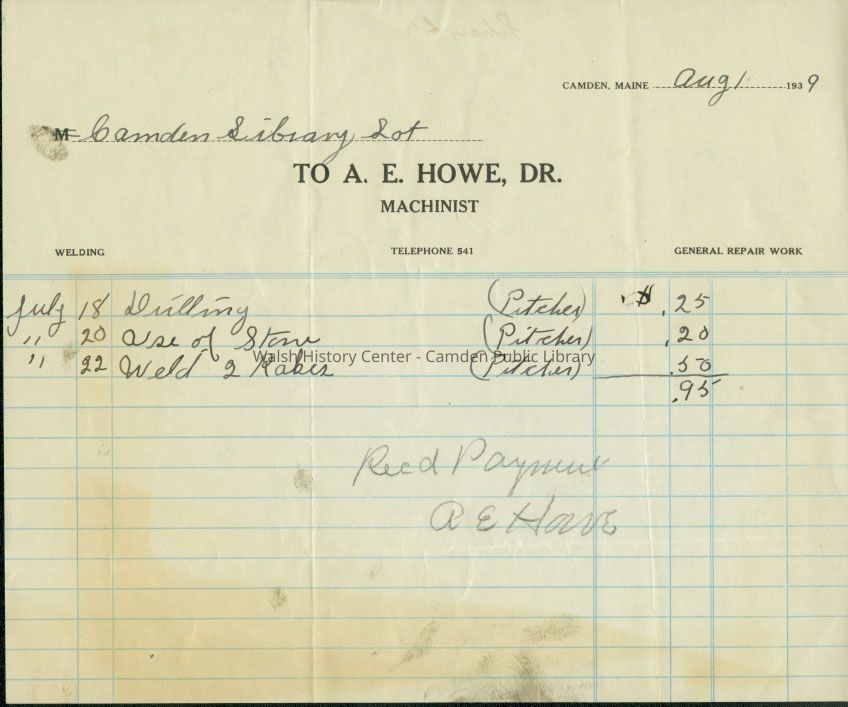 CAMDEN, MAINE Aug 1 1939
M Camden Library Lot
TO A. E. HOWE, DR.
MACHINIST
WELDING TELEPHONE 541 GENERAL REPAIR WORK
July 18 Drilling (Pitcher) $ .25
" 20 Use of Stone (Pitcher) .20
Walsh History Center - Camden Public Library
" 22 Weld 2 Rakes (Pitcher) .50
.95
Recd Payment
A E Howe